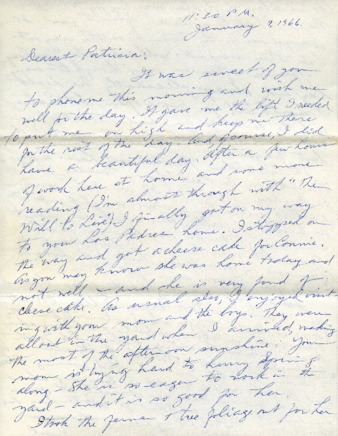 11:30 P.M.
January 9, 1966.
Dearest Patricia:
It was sweet of you
to phone me this morning and wish me
well for the day. It gave me the lift I needed
to put me on high and keep me there
for the rest of the day. And I did
have a beautiful day. After a few hours
of work here at home and some more
reading (I'm almost through with "The
Will to Live") I finally got on my way
to your Los Padres home. I stopped on
the way and got a cheese cake for Connie.
As you may know she was home today and
not well – and she is very fond of
cheese cake. As usual also, I enjoyed visit-
ing with your mom and the boys. They were
all out in the yard when I arrived, making
the most of the afternoon sunshine. Your
mom is trying hard to hurry Spring
along – She is so eager to work in the
yard – and it is so good for her.
I took the ferns & tree foliage out for her